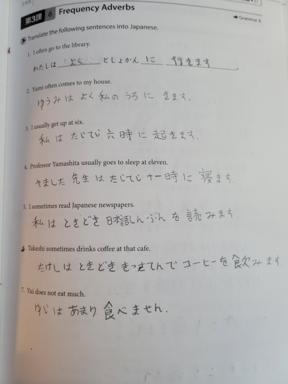 第3課 6 Frequency Adverbs
Grammar 6
Translate the following sentences into Japanese.
1. I often go to the library.
わたしは よく としょかん に 行きます
2. Yumi often comes to my house.
ゆうみ は よく 私の うちに きます.
3. I usually get up at six.
私 は たいてい 六時に 起きます.
4. Professor Yamashita usually goes to sleep at eleven.
やました 先生 は たいてい 十一時に 寝ます
5. I sometimes read Japanese newspapers.
私 は ときどき 日本語しんぶん を 読みます
6. Takeshi sometimes drinks coffee at that cafe.
たけし は ときどき きっさてんで コーヒーを 飲みます
7. Yui does not eat much.
ゆい は あまり 食べません.